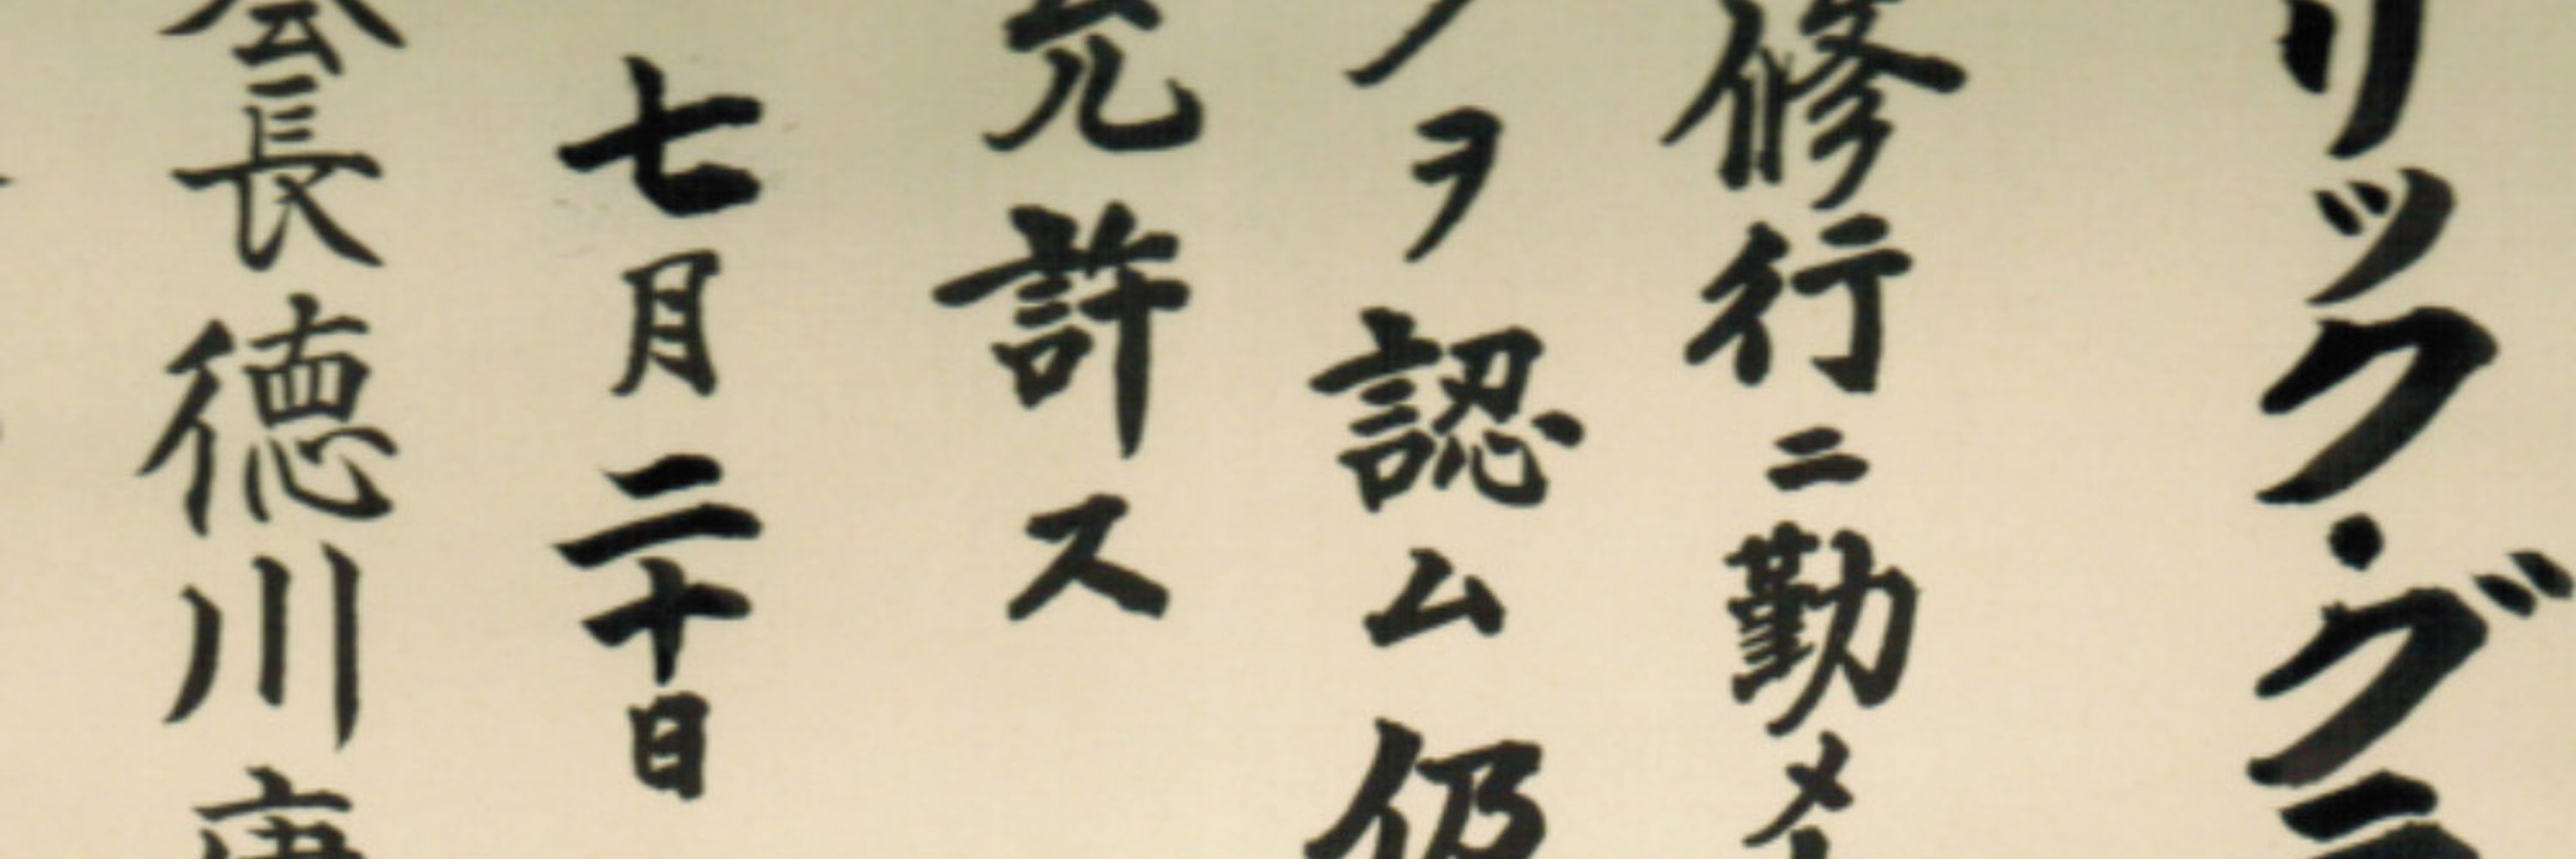 リック・グラ
修行ニ勤メ
ヲ認ム仍
允許ス
七月二十日
会長徳川康